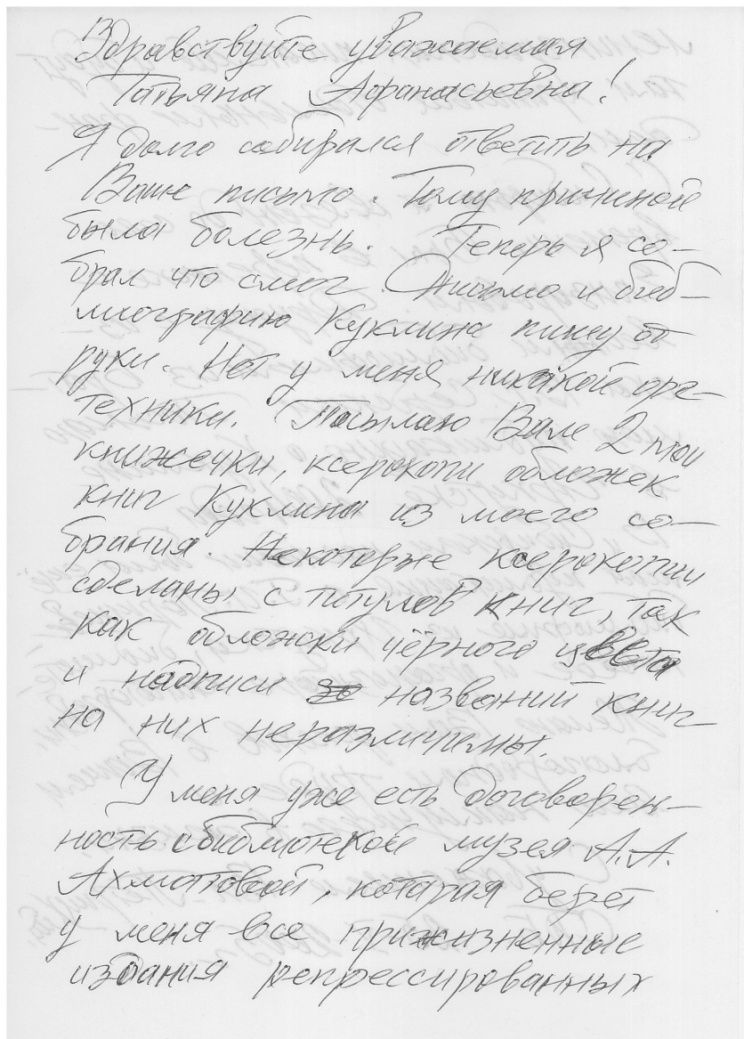 Здравствуйте уважаемая
Татьяна Афанасьевна!
Я долго собирался ответить на
Ваше письмо. Тому причиной
была болезнь. Теперь я со-
брал что смог. Письмо и биб-
лиографию Куклина пишу от
руки. Нет у меня никакой орг-
техники. Посылаю Вам 2 мои
книжечки, ксерокопи обложек
книг Куклина из моего со-
брания. Некоторые ксерокопии
сделаны с титулов книг, так
как обложки чёрного цвета
и надписи названий книг
на них неразличимы.
У меня уже есть договорен-
ность с библиотекой музея А.А.
Ахматовой, которая берет
у меня все прижизненные
издания репрессированных